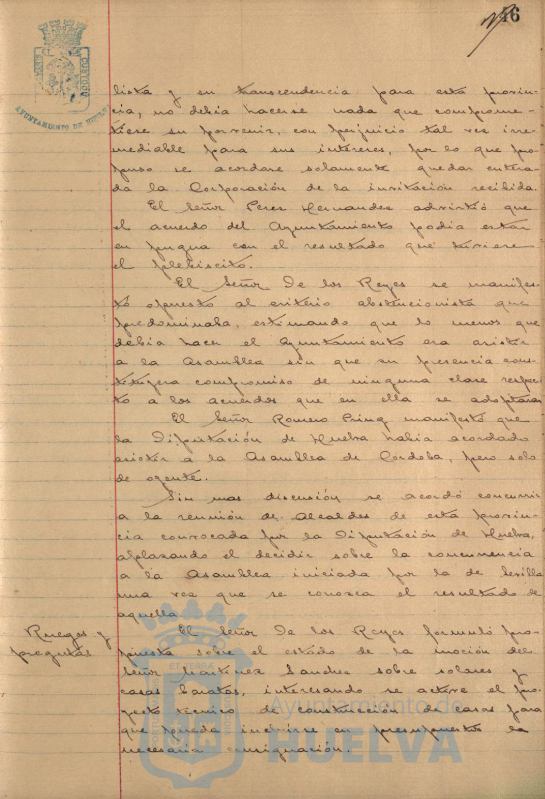 46
AYUNTAMIENTO DE HUELVA
lista y su transcendencia para esta provin-
cia, no debia hacerse nada que comprome-
tiese su porvenir, con perjuicio tal vez irre-
mediable para sus intereses, por lo que pro-
puso se acordase solamente quedar entera-
da la Corporación de la invitación recibida.
El Señor Perez Hernandez advirtió que
el acuerdo del Ayuntamiento podia estar
en pugna con el resultado que tuviere
el plebiscito.
El Señor De los Reyes se manifes-
tó opuesto al criterio abstencionista que
predominaba, estimando que lo menos que
debia hacer el Ayuntamiento era asistir
a la Asamblea sin que su presencia cons-
tituyera compromiso de ninguna clase respec-
to a los acuerdos que en ella se adoptaran
El Señor Romero manifestó que
la Diputación de Huelva habia acordado
asistir a la Asamblea de Cordoba, pero solo
de oyente.
Sin mas discusión se acordó concurrir
a la reunión de Alcaldes de esta provin-
cia convocada por la Diputación de Huelva,
aplazando el decidir sobre la concurrencia
a la Asamblea iniciada por la de Sevilla
una vez que se conozca el resultado de
aquella.
Ruegos y
preguntas
El Señor De los Reyes formuló pro-
puesta sobre el estado de la moción del
Señor Martinez Sanchez sobre solares y
casas baratas, interesando se active el pro-
yecto técnico de construcción de casas para
que pueda incluirse en presupuestos la
necesaria consignación.
Ayuntamiento de
HUELVA